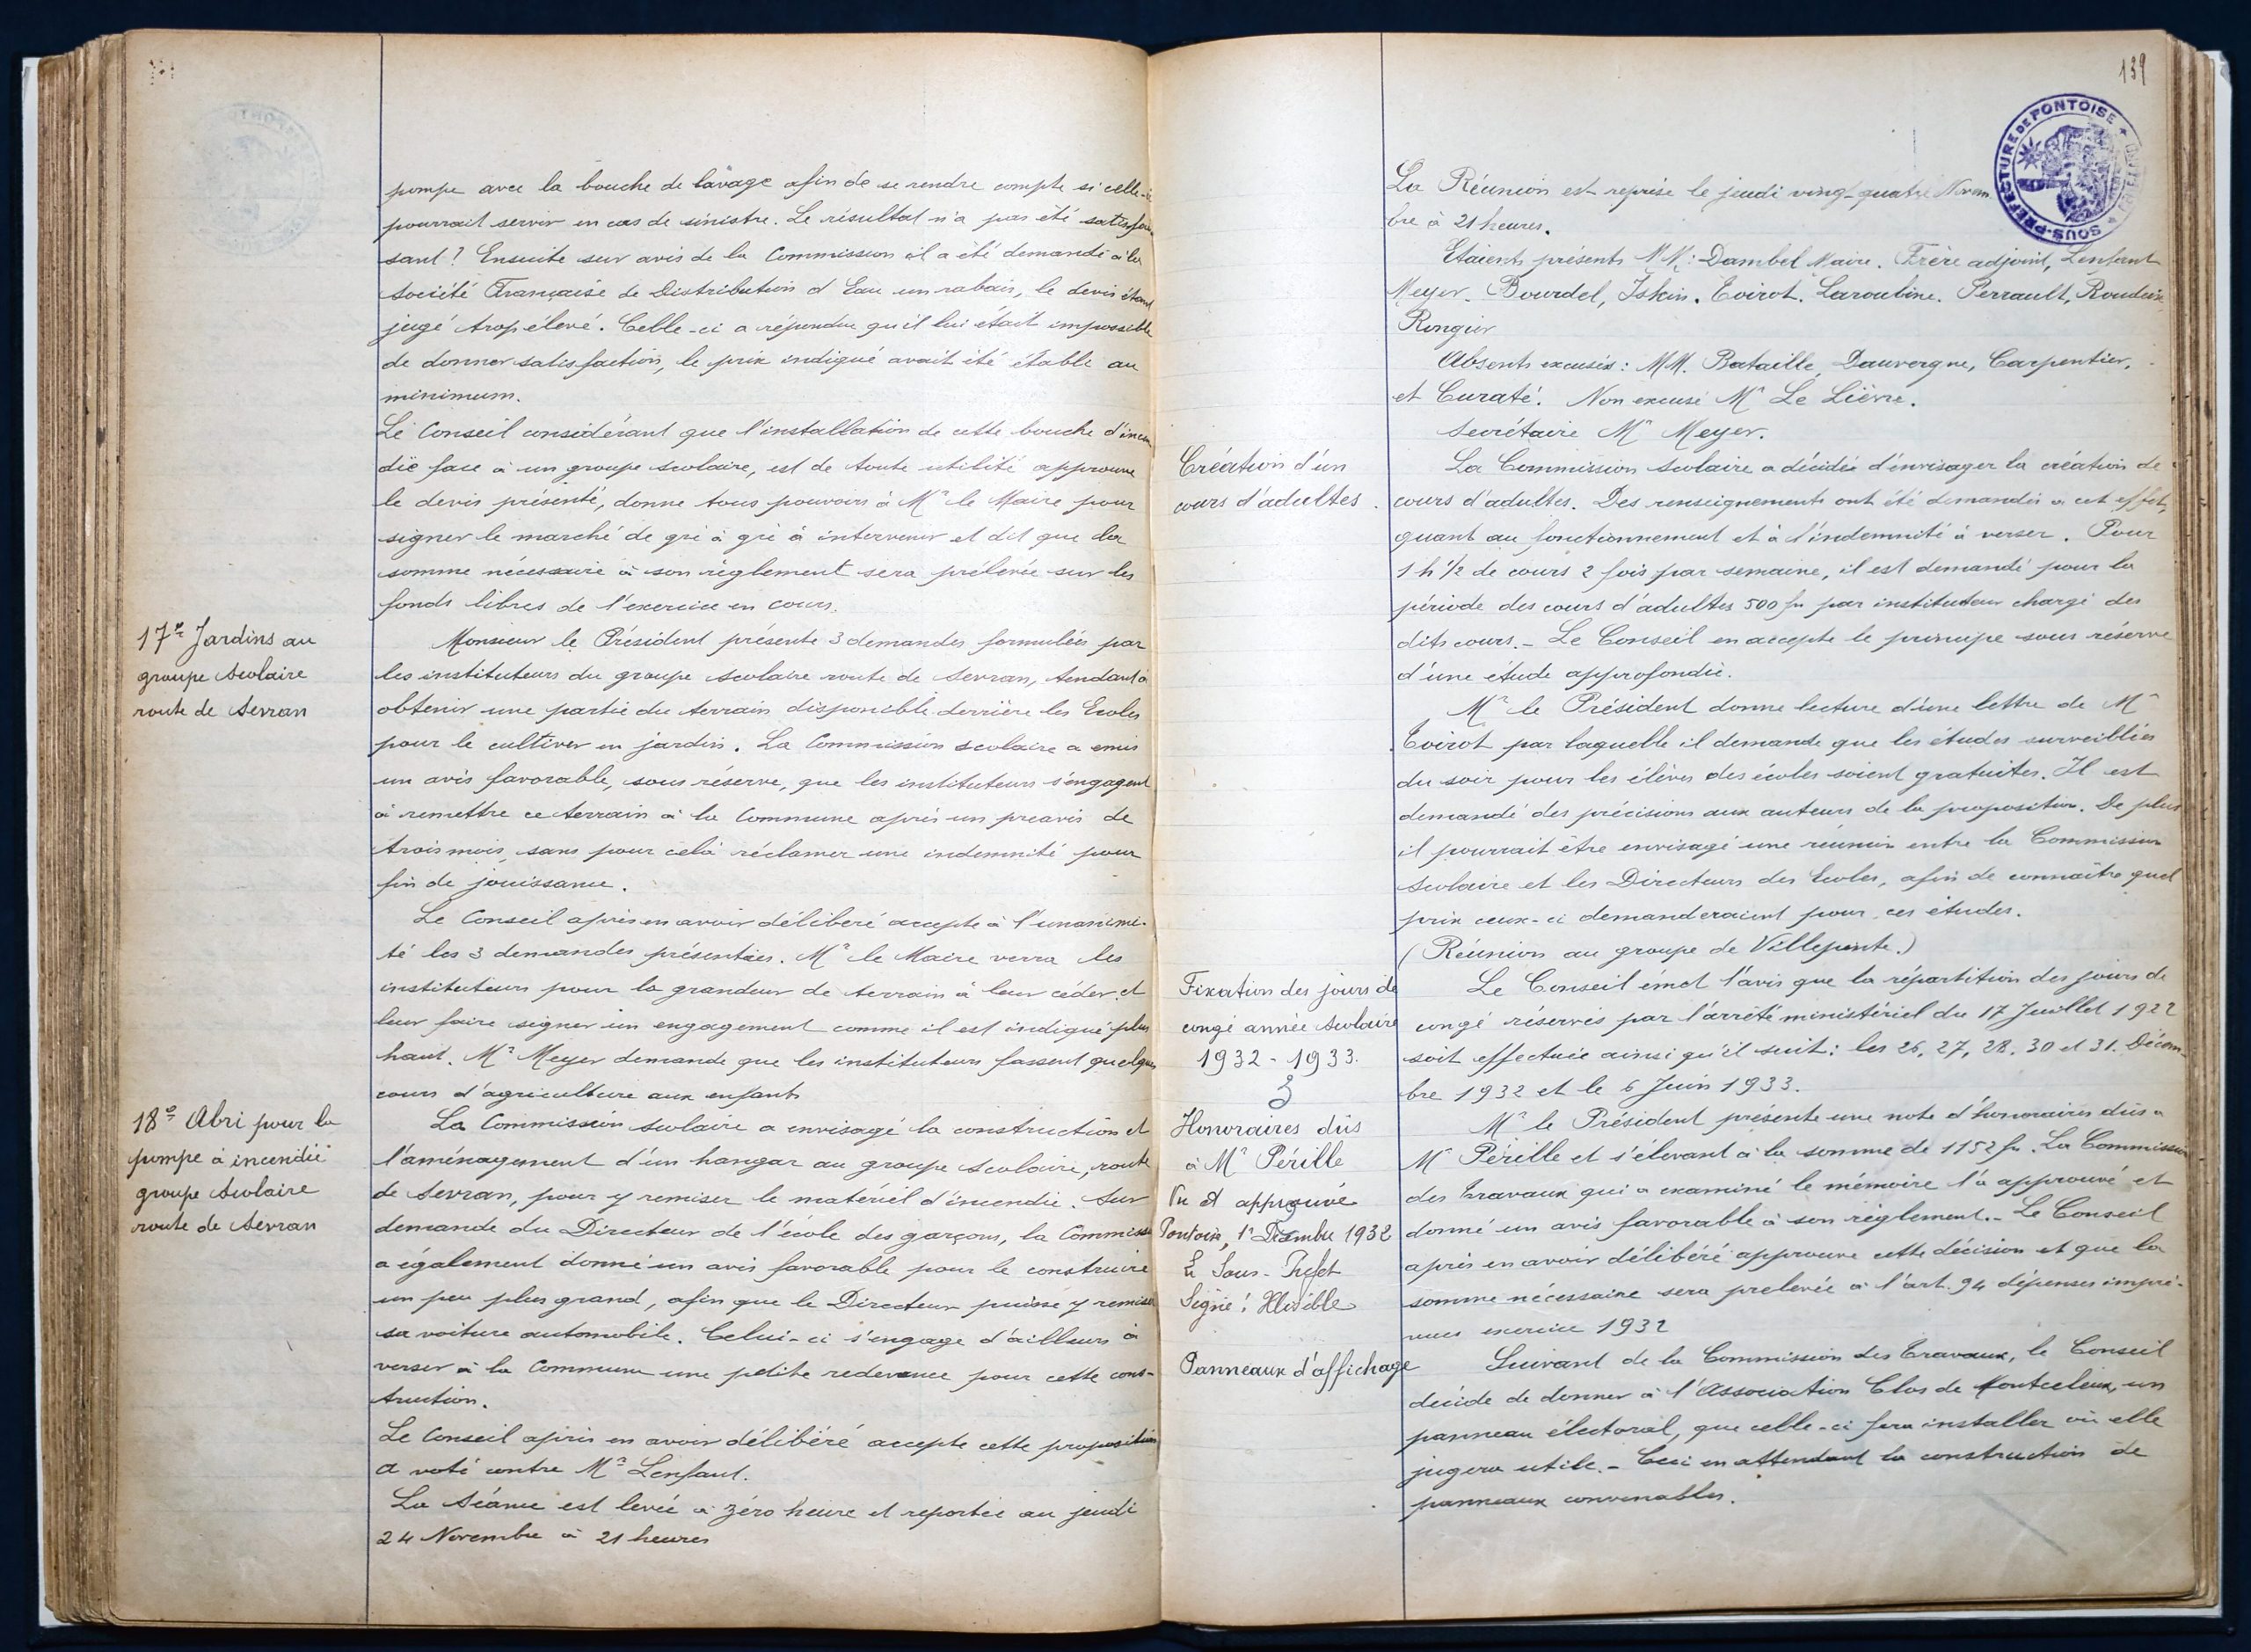 pompe avec la bouche de lavage afin de se rendre compte si celle-ci
pourrait servir en cas de sinistre. Le résultat n'a pas été satisfai
sant? Ensuite sur avis de la Commission il a été demandé à la
Société Française de Distribution d'Eau un rabais, le devis étant
jugé trop élevé. Celle-ci a répondu qu'il lui était impossible
de donner satisfaction, le prix indiqué avait été établi au
minimum.
Le Conseil considérant que l'installation de cette bouche d'incen
die face à un groupe scolaire, est de toute utilité approuve
le devis présenté, donne tous pouvoirs à Mr le Maire pour
signer le marché de gré à gré à intervenir et dit que la
somme nécessaire à son règlement sera prélevée sur les
fonds libres de l'exercice en cours.
17° Jardins au
groupe scolaire
route de Sevran
Monsieur le Président présente 3 demandes formulées par
les instituteurs du groupe scolaire route de Sevran, tendant à
obtenir une partie du terrain disponible derrière les Ecoles
pour le cultiver en jardin. La Commission scolaire a émis
un avis favorable, sous réserve, que les instituteurs s'engagent
à remettre ce terrain à la Commune après un préavis de
trois mois, sans pour celà réclamer une indemnité pour
fin de jouissance.
Le Conseil après en avoir délibéré accepte à l'unanimi-
té les 3 demandes présentées. Mr le Maire verra les
instituteurs pour la grandeur de terrain à leur céder et
leur faire signer un engagement comme il est indiqué plus
haut. Mr Meyer demande que les instituteurs fassent quelques
cours d'agriculture aux enfants
18° Abri pour la
pompe à incendie
groupe scolaire
route de Sevran
La Commission scolaire a envisagé la construction et
l'aménagement d'un hangar au groupe scolaire, route
de Sevran, pour y remiser le matériel d'incendie. Sur
demande du Directeur de l'école des garçons, la Commission
a également donné un avis favorable pour le construire
un peu plus grand, afin que le Directeur puisse y remiser
sa voiture automobile. Celui-ci s'engage d'ailleurs à
verser à la Commune une petite redevance pour cette cons-
truction.
Le Conseil après en avoir délibéré accepte cette proposition
a voté contre Mr Lenfant.
La Séance est levée à zéro heure et reportée au jeudi
24 Novembre à 21 heures
139
SOUS-PREFECTURE DE PONTOISE
La Réunion est reprise le jeudi vingt-quatre Novem
bre à 21 heures.
Etaients présents MM: Dambel Maire. Frère adjoint, Lenfant
Meyer. Bourdel, Iskin. Toirot. Laroubine. Perrault,
Rongier
Absents excusés: MM. Bataille, Dauvergne, Carpentier,
et Curaté. Non excusé Mr Le Lièvre.
Secrétaire Mr Meyer.
Création d'un
cours d'adultes.
La Commission scolaire a décidée d'envisager la création de
cours d'adultes. Des renseignements ont été demandés à cet effet,
quant au fonctionnement et à l'indemnité à verser. Pour
1 h 1/2 de cours 2 fois par semaine, il est demandé pour la
période des cours d'adultes 500 fr par instituteur chargé des
dits cours. - Le Conseil en accepte le principe sous réserve
d'une étude approfondie.
Mr le Président donne lecture d'une lettre de Mr
Toirot par laquelle il demande que les études surveillées
du soir pour les élèves des écoles soient gratuites. Il est
demandé des précisions aux auteurs de la proposition. De plus
il pourrait être envisagé une réunion entre la Commission
scolaire et les Directeurs des Ecoles, afin de connaître quel
prix ceux-ci demanderaient pour ces études.
(Réunion au groupe de Villepinte.)
Fixation des jours de
congé année scolaire
1932 - 1933.
Le Conseil émet l'avis que la répartition des jours de
congé réservés par l'arrêté ministériel du 17 Juillet 1922
soit effectuée ainsi qu'il suit: les 26, 27, 28, 30 et 31. Décem-
bre 1932 et le 6 Juin 1933.
Honoraires dûs
à Mr Pérille
Mr le Président présente une note d'honoraires dûs à
Mr Pérille et s'élevant à la somme de 1152 fr. La Commission
des travaux qui a examiné le mémoire l'a approuvé et
donné un avis favorable à son règlement. - Le Conseil
après en avoir délibéré approuve cette décision et que la
somme nécessaire sera prélevée à l'art. 94 dépenses impré-
vues exercice 1932
Vu et approuvé
Pontoise, 1er Décembre 1932
Le Sous-Préfet
Signé: Illisible
Panneaux d'affichage
Suivant de la Commission des Travaux, le Conseil
décide de donner à l'Association Clos de Montceleux, un
panneau électoral, que celle-ci fera installer où elle
jugera utile. - Ceci en attendant la construction de
panneaux convenables.